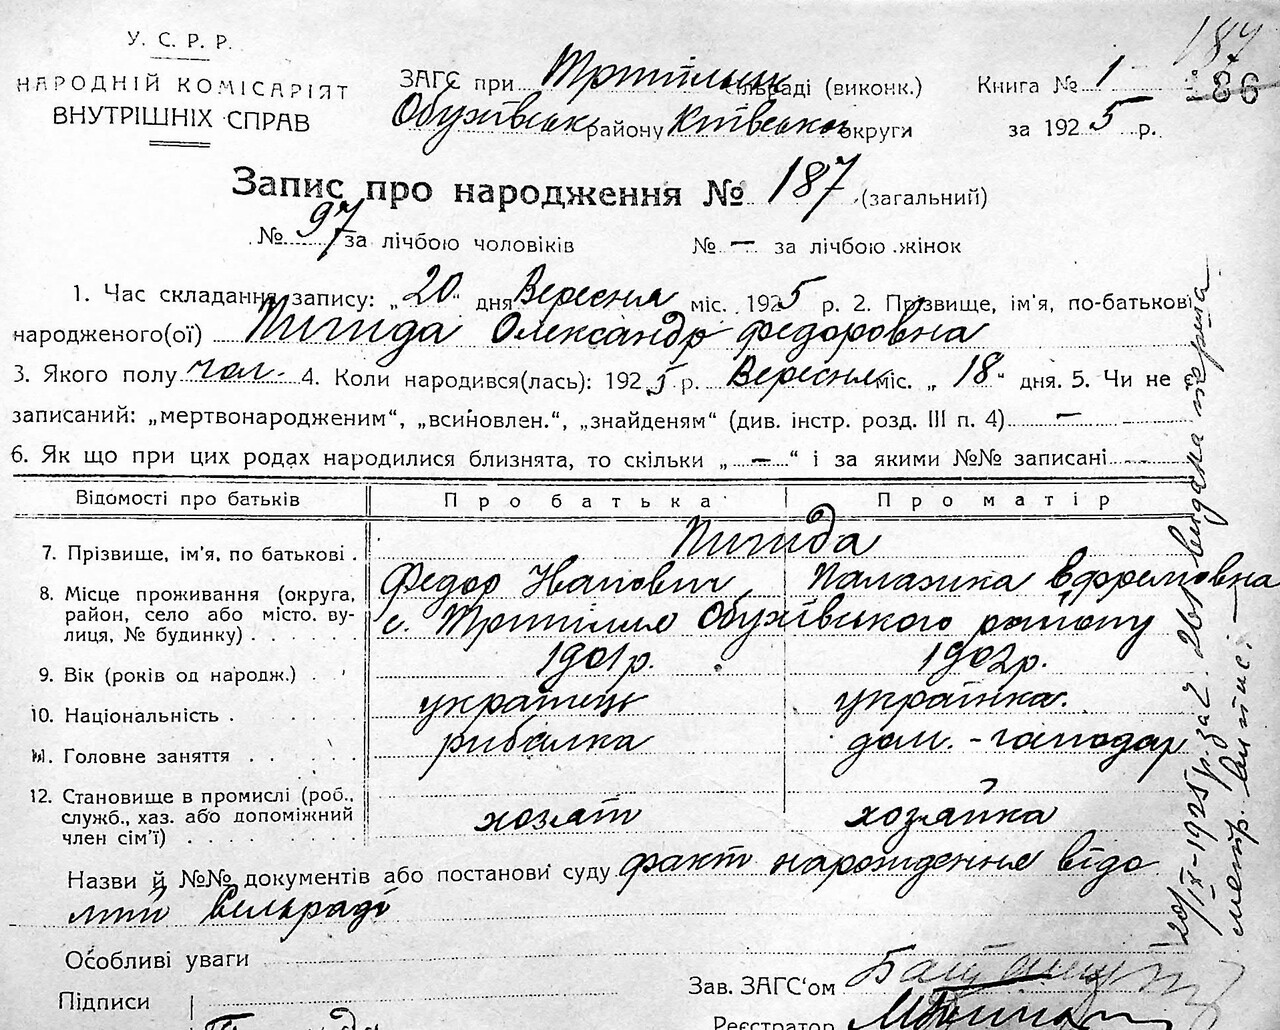 У. С. Р. Р.
НАРОДНІЙ КОМІСАРІЯТ
ВНУТРІШНІХ СПРАВ
ЗАГС при Трипільськ. сільраді (виконк.)
Обухівськ району Київськ округи
Книга № 1
187
86
за 1925 р.
Запис про народження № 187 (загальний)
№ 97 за лічбою чоловіків № — за лічбою жінок
1. Час складання запису: „20“ дня Вересня міс. 1925 р. 2. Прізвище, ім'я, по-батькові
народженого(ої) Пигида Олександр Федоровна
3. Якого полу чол. 4. Коли народився(лась): 1925 р. Вересня міс. „18“ дня. 5. Чи не є
записаний: „мертвонародженим“, „всиновлен.“, „знайденям“ (див. інстр. розд. III п. 4) —
6. Як що при цих родах народилися близнята, то скільки „—“ і за якими №№ записані
Відомості про батьків Про батька Про матір
7. Прізвище, ім'я, по батькові . Пигида
Федор Іванович Палажка Ефремовна
8. Місце проживання (округа,
район, село або місто. ву-
лиця, № будинку) . . . . .
с. Трипілля Обухівського району
9. Вік (років од народж.) . 1901 р. 1902 р.
10. Національність . українець українка.
11. Головне заняття . . . . . рибалка дом. - господар
12. Становище в промислі (роб.,
служб., хаз. або допоміжний
член сім'ї) . . . . . . .
хозяїн хозяйка
Назви й №№ документів або постанови суду факт народження відо
мий сельраді
Особливі уваги
Підписи
Зав. ЗАГС'ом
Реєстратор
20/IX-1925 р. за № 26 видана перша
метр. випис: —